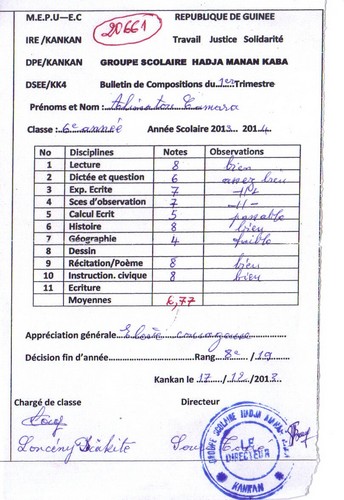 M.E.P.U—E.C REPUBLIQUE DE GUINEE
20661
IRE /KANKAN Travail Justice Solidarité
DPE/KANKAN GROUPE SCOLAIRE HADJA MANAN KABA
DSEE/KK4 Bulletin de Compositions du 1er Trimestre
Prénoms et Nom : Camara
Classe : 6e année Année Scolaire 2013... 2014..
No Disciplines Notes Observations
1 Lecture 8 bien
2 Dictée et question 6 assez bien
3 Exp. Ecrite 7
4 Sces d'observation 7 —//—
5 Calcul Ecrit 5 passable
6 Histoire 8 bien
7 Géographie 4 faible
8 Dessin
9 Récitation/Poème 8 bien
10 Instruction. civique 8 bien
11 Ecriture
Moyennes 6,77
Appréciation générale Elève courageuse
Décision fin d'année............Rang 8e /19
Kankan le 17 /12 /2013..
Chargé de classe Directeur
Loncény Diakité
GROUPE SCOLAIRE HADJA MANAN
LE DIRECTEUR
KANKAN